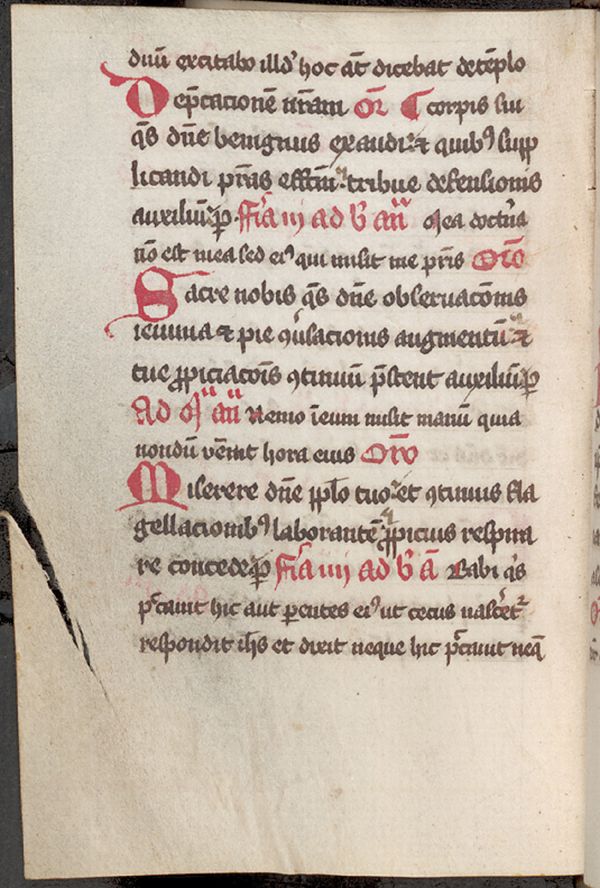 duū excitabo illd' hoc aūt dicebat de tēplo
Dep̄cacionē nr̄am Or̄ corp̄is sui
q̄s dn̄e benignus exaudi et quib9 supp
licandi pr̄as effcm̄ tribue defensionis
auxiliū p̄ Fr̄ia iij ad b̄ an̄ Mea doctⁱna
nō est mea sed ei9 qui misit me pr̄is Orō
Sacre nobis q̄s dn̄e obseruacōnis
ieiunia et pie 9ůsacionis augmentū et
tue ꝓpiciacōis 9tinuū p̄stent auxiliū p̄
Ad m̄ an̄ Nemo īesum misit manū quia
nondū vēnit hora eius Orō
Miserere dn̄e pplo tuo et 9tinuis fla
gellacionib9 laborantē ꝓpicius respira
re concede p̄ Fr̄ia iiij ad b̄ ā Rabi q̄s
pc̄auit hic aut parentes ei9 ut cecus nascet᷑
respondit ih̄s et dixit neque hic pc̄auit neq̄